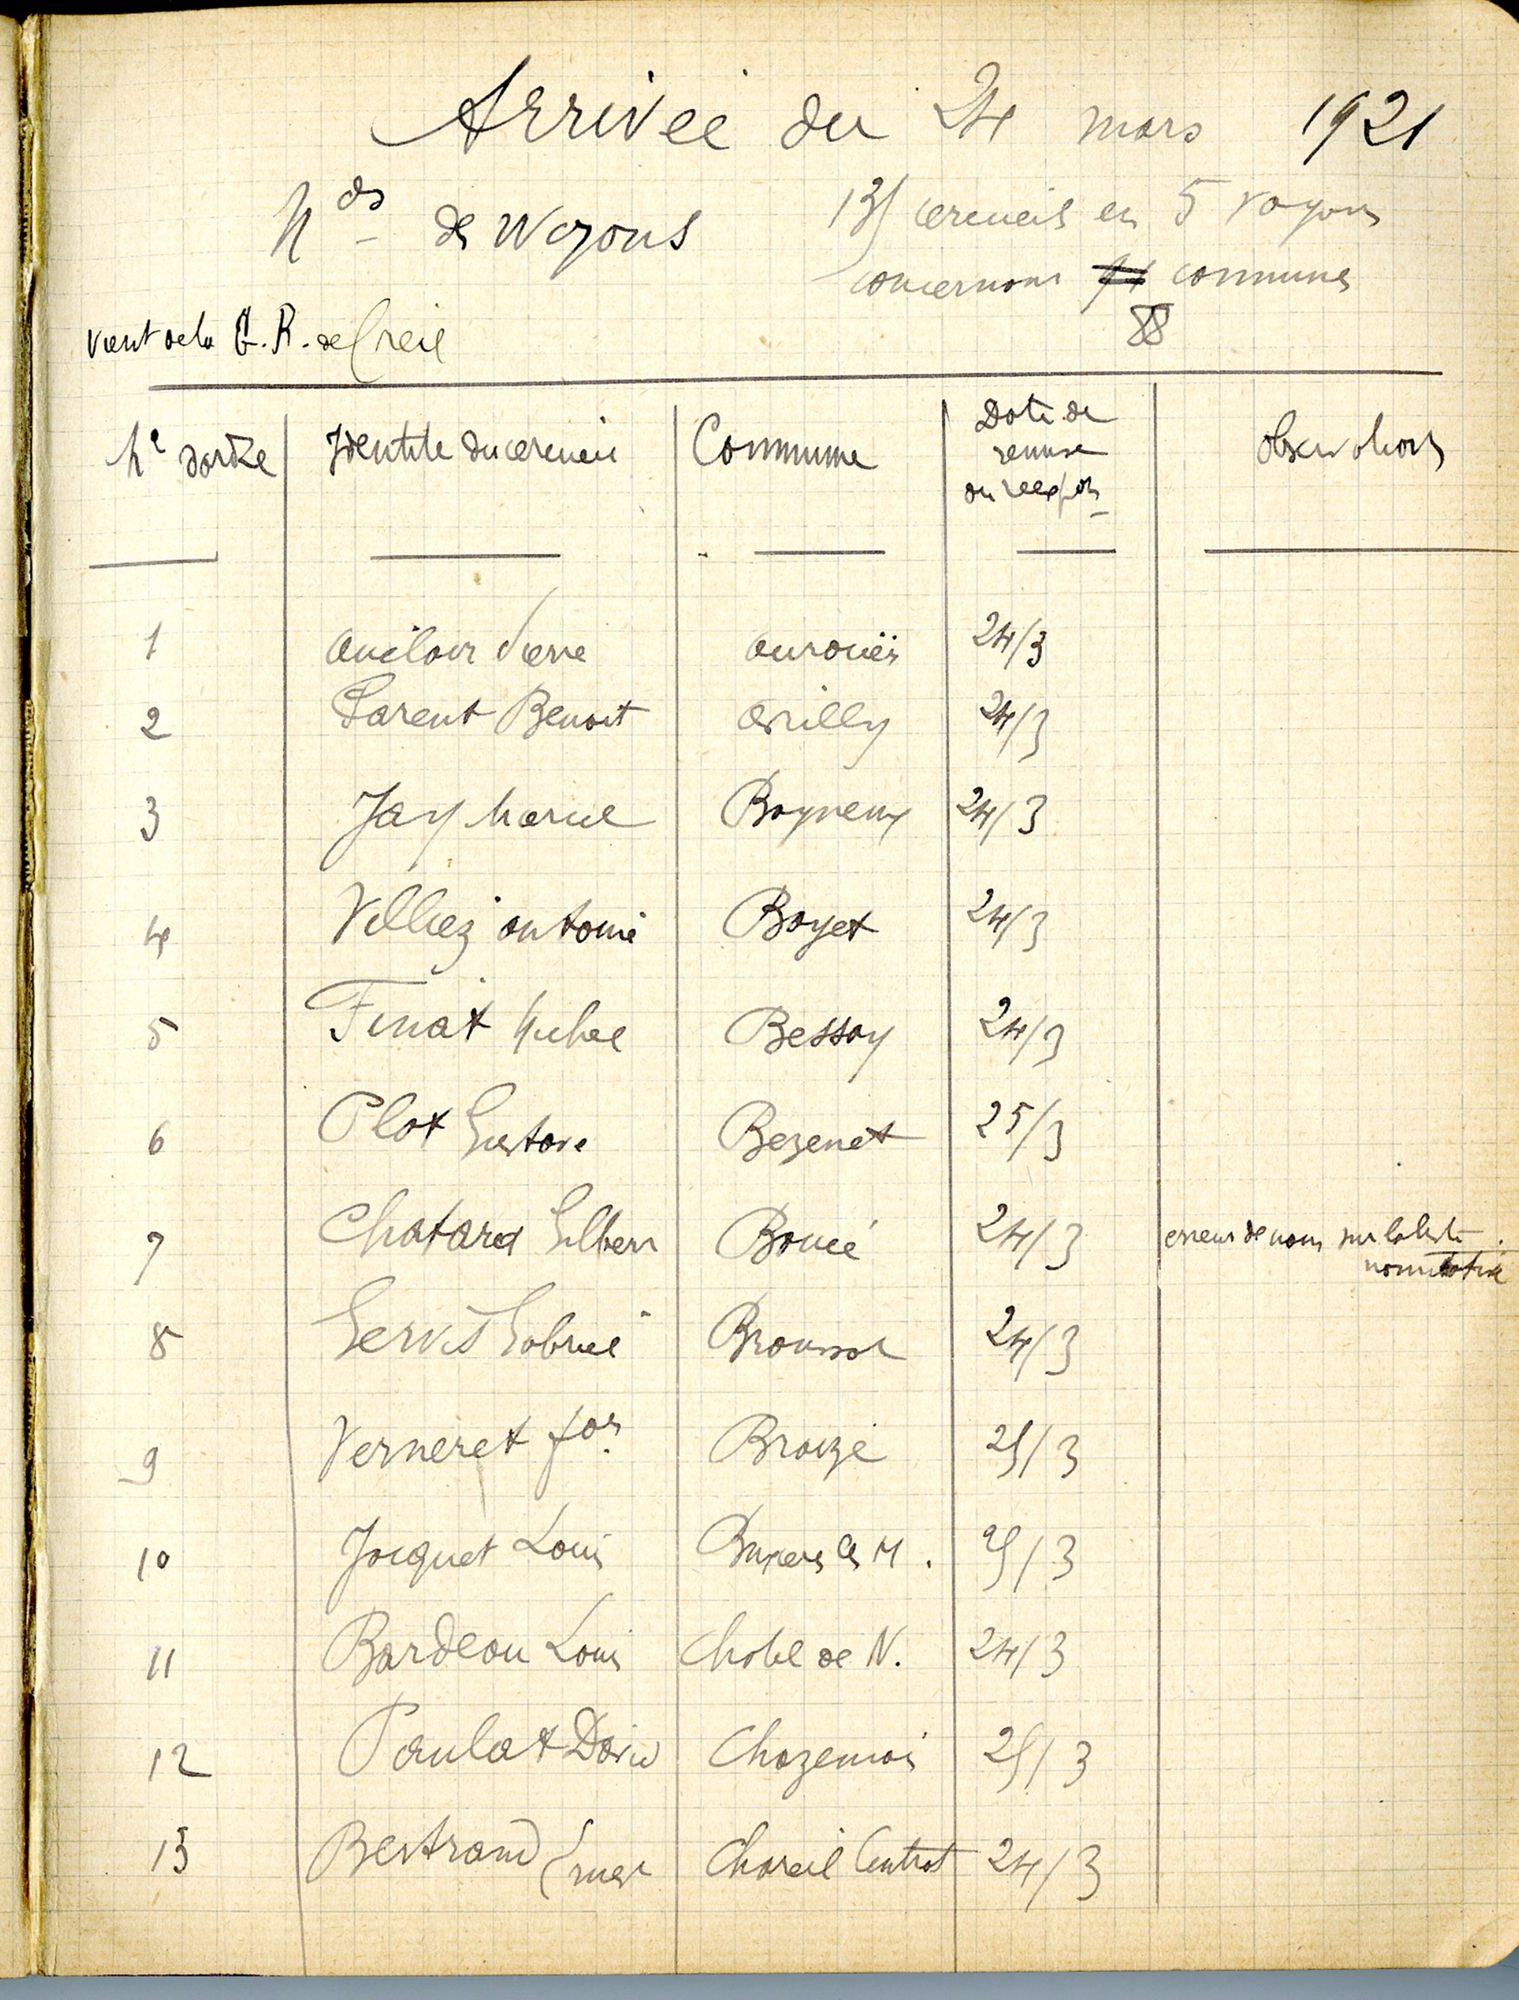 Arrivée du 24 mars 1921
Nos de Wagons
13 cercueils en 5 vagons
concernant communes
88
vient de la G. R. de Creil
No d'ordre Identité du cercueil Commune Date de remise ou réexpon Observations
1 Auclair Pierre Aurouër 24/3
2 Parent Benoit Avrilly 24/3
3 Jay Marcel Bagneux 24/3
4 Villiez Antoine Bayet 24/3
5 Finat Michel Bessay 24/3
6 Plot Gustave Bezenet 25/3
7 Chatard Gilbert Boucé 24/3 erreur de nom sur la liste
nominative
8 Servis Gabriel 24/3
9 Verneret fois Braize 25/3
10 Jacquet Louis Buxière les M. 25/3
11 Bardeau Louis Chatel de N. 24/3
12 Paulat David Chazemais 25/3
13 Bertrand Chareil Cintrat 24/3